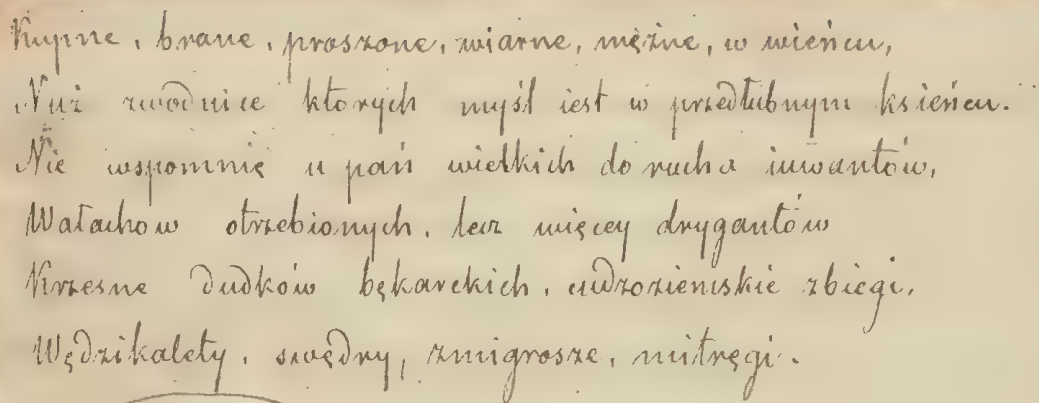 Kupne, brane, proszone, wiarne, mężne, w wieńcu,
Nuż zwodnice których myśl iest w przedłubnym ksieńcu.
Nie wspomnię u pań wielkich do rucha inwantów,
Wałachow otrzebionych, lecz więcey drygantów
Krzesne dudków bękarckich, cudzoziemskie zbiegi,
Wędzikalety, swędry, zmigrosze, mitręgi.